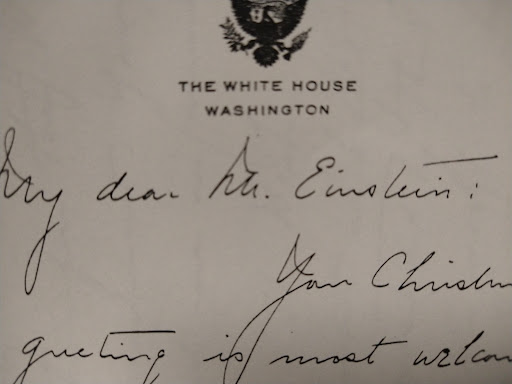 THE WHITE HOUSE
WASHINGTON
My dear Mr. Einstein:
Your Christm
greeting is most welcom